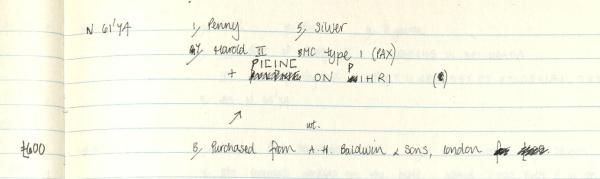 N 61'74 1, Penny 5, Silver
4, Harold II BMC type 1 (PAX)
PICINC P
+ ON IHRI
wt.
£600 8, Purchased from A.H. Baldwin & Sons, London